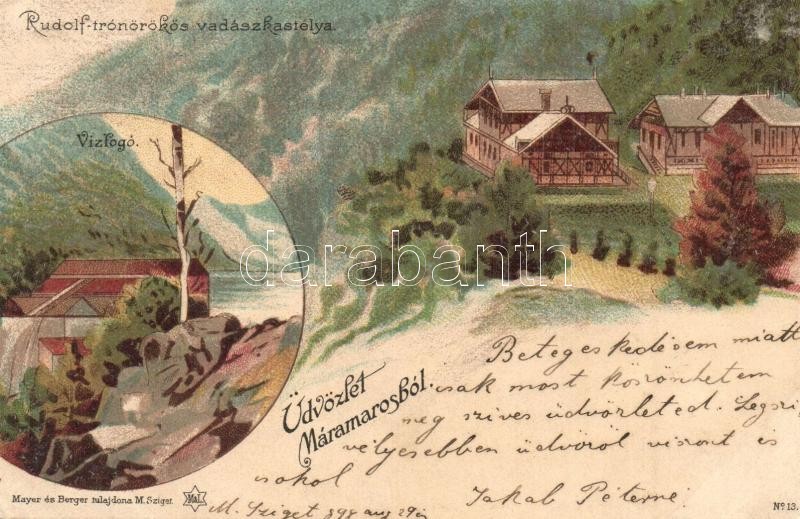 Rudolf-trónörökös vadászkastélya.
Vizfogó.
darabanth
Üdvözlet
Máramarosból.
Betegeskedésem miatt
csak most köszönhetem
meg szives üdvözleted. Legszi
vélyesebben üdvözöl viszont és
csókol
Jakab Péterné
M. Sziget 898 aug 29én
Mayer és Berger tulajdona M. Sziget.
M&B
Nº 13.